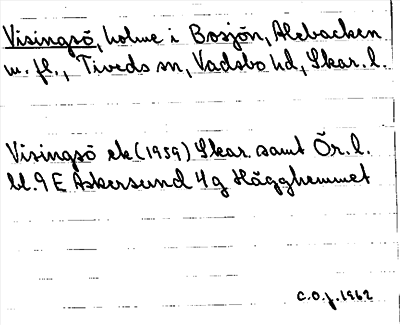 Visingsö, holme i Bosjön, Alebacken
m. fl., Tiveds sn, Vadsbo hd, Skar. l.
Visingsö ek (1959) Skar. samt Ör. l.
bl. 9 E Askersund 4 g Hägghemmet
C.O.J. 1962